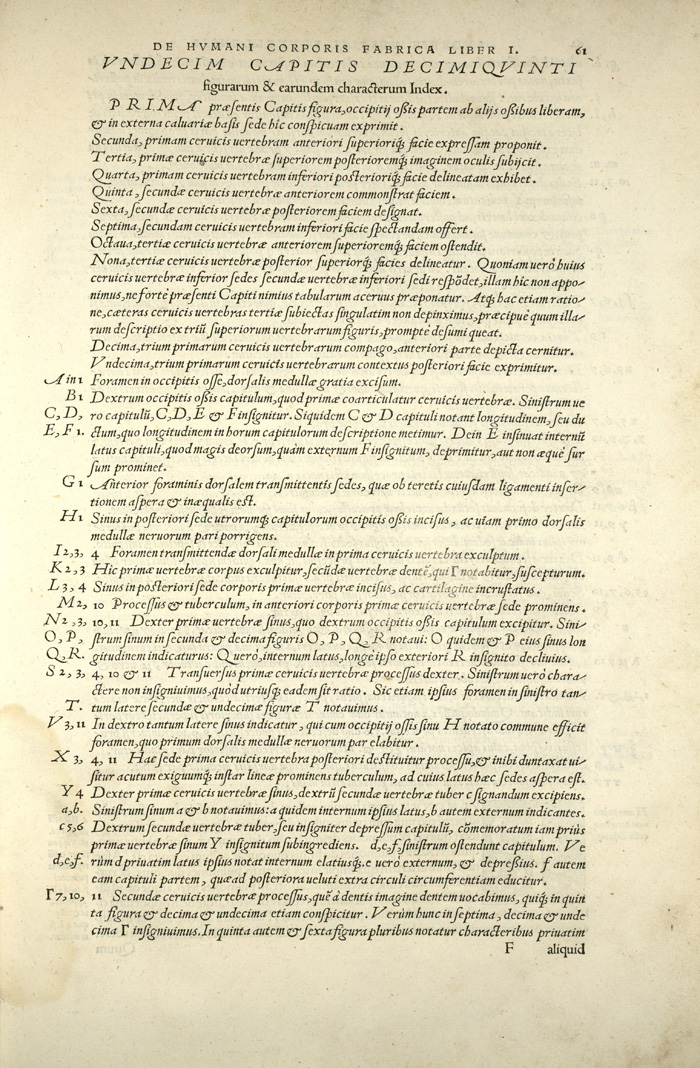 DE HVMANI CORPORIS FABRICA LIBER I. 61
VNDECIM CAPITIS DECIMIQVINTI
figurarum & earundem characterum Index.
PRIMA præsentis Capitis figura, occipitij oßis partem ab alijs oßibus liberam,
& in externa caluariæ basis sede hic conspicuam exprimit.
Secunda, primam ceruicis uertebram anteriori superiorіq́; facie expressam proponit.
Tertia, primæ ceruicis uertebræ superiorem posterioremq́; imaginem oculis subijcit.
Quarta, primam ceruicis uertebram inferiori posteriorіq́; facie delineatam exhibet.
Quinta, secundæ ceruicis uertebræ anteriorem commonstrat faciem.
Sexta, secundæ ceruicis uertebræ posteriorem faciem designat.
Septima, secundam ceruicis uertebram inferiori facie spectandam offert.
Octaua, tertiæ ceruicis uertebræ anteriorem superioremq́; faciem ostendit.
Nona, tertiæ ceruicis uertebræ posterior superiorq́; facies delineatur. Quoniam uerò huius
ceruicis uertebræ inferior sedes secundæ uertebræ inferiori sedi respõdet, illam hic non appo-
nimus, ne fortè præsenti Capiti nimius tabularum aceruus præponatur. Atq́; hac etiam ratio-
ne, cæteras ceruicis uertebras tertiæ subiectas singulatim non depinximus, præcipuè quum illa-
rum descriptio ex triũ superiorum uertebrarum figuris, promptè desumi queat.
Decima, trium primarum ceruicis uertebrarum compago, anteriori parte depicta cernitur.
Vndecima, trium primarum ceruicis uertebrarum contextus posteriori facie exprimitur.
A in 1 Foramen in occipitis osse, dorsalis medullæ gratia excisum.
B 1 Dextrum occipitis oßis capitulum, quod primæ coarticulatur ceruicis uertebræ. Sinistrum ue
C, D, ro capitulũ, C, D, E & F insignitur. Siquidem C & D capituli notant longitudinem, seu du
E, F 1. ctum, quo longitudinem in horum capitulorum descriptione metimur. Dein E insinuat internũ
latus capituli, quod magis deorsum, quàm externum F insignitum, deprimitur, aut non æquè sur
sum prominet.
G 1 Anterior foraminis dorsalem transmittentis sedes, quæ ob teretis cuiusdam ligamenti inser-
tionem aspera & inæqualis est.
H 1 Sinus in posteriori sede utrorumq́; capitulorum occipitis oßis incisus, ac uiam primo dorsalis
medullæ neruorum pari porrigens.
I 2, 3, 4 Foramen transmittendæ dorsali medullæ in prima ceruicis uertebra exculptum.
K 2, 3 Hic primæ uertebræ corpus exculpitur, secũdæ uertebræ dentẽ, qui Γ notabitur, suscepturum.
L 3, 4 Sinus in posteriori sede corporis primæ uertebræ incisus, ac cartilagine incrustatus.
M 2, 10 Processus & tuberculum, in anteriori corporis primæ ceruicis uertebræ sede prominens.
N 2, 3, 10, 11 Dexter primæ uertebræ sinus, quo dextrum occipitis oßis capitulum excipitur. Sini-
O, P, strum sinum in secunda & decima figuris O, P, Q, R notaui: O quidem & P eius sinus lon
Q, R. gitudinem indicaturus: Q uerò, internum latus, longè ipso exteriori R insignito decliuius.
S 2, 3, 4, 10 & 11 Transuersus primæ ceruicis uertebræ processus dexter. Sinistrum uerò chara-
ctere non insigniuimus, quòd utriusq́; eadem sit ratio. Sic etiam ipsius foramen in sinistro tan-
T. tum latere secundæ & undecimæ figuræ T notauimus.
V 3, 11 In dextro tantum latere sinus indicatur, qui cum occipitij oßis sinu H notato commune efficit
foramen, quo primum dorsalis medullæ neruorum par elabitur.
X 3, 4, 11 Hac sede prima ceruicis uertebra posteriori destituitur processu, & inibi duntaxat ui-
situr acutum exiguumq́; instar lineæ prominens tuberculum, ad cuius latus hæc sedes aspera est.
Y 4 Dexter primæ ceruicis uertebræ sinus, dextrũ secundæ uertebræ tuber c signandum excipiens.
a, b. Sinistrum sinum a & b notauimus: a quidem internum ipsius latus, b autem externum indicantes.
c 5, 6 Dextrum secundæ uertebræ tuber, seu insigniter depressũm capitulũ, cõmemoratum iam priùs
primæ uertebræ sinum Y insignitum subingrediens. d, e, f, sinistrum ostendunt capitulum. Ve
d, e, f. rùm d priuatim latus ipsius notat internum elatiusq́;. e uerò externum, & depreßius. f autem
eam capituli partem, quæ ad posteriora ueluti extra circuli circumferentiam educitur.
Γ 7, 10, 11 Secundæ ceruicis uertebræ processus, quẽ à dentis imagine dentem uocabimus, quiq́; in quin
ta figura & decima & undecima etiam conspicitur. Verùm hunc in septima, decima & unde
cima Γ insigniuimus. In quinta autem & sexta figura pluribus notatur characteribus priuatim
F aliquid